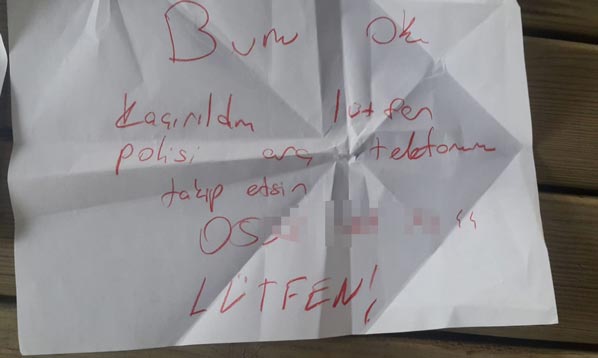 Bunu Oku
Kaçırıldım lütfen
polisi ara telefonum
takip etsin
05 44
LÜTFEN!